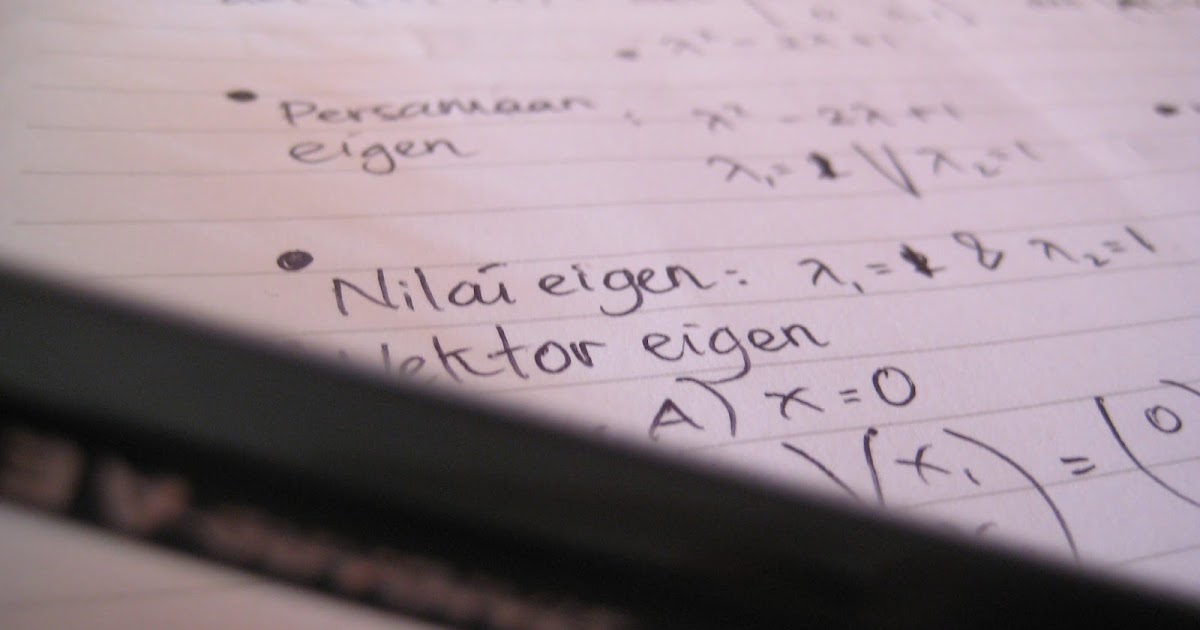 • λ² - 2λ+1
• Persamaan : λ² - 2λ+1
eigen λ₁=1 V λ₂=1
• Nilai eigen: λ₁=1 & λ₂=1
Vektor eigen
A) x = 0
(x₁) = (0)